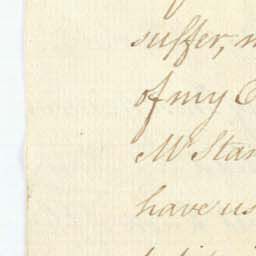 suffer,
of my
Mr Stan
have us